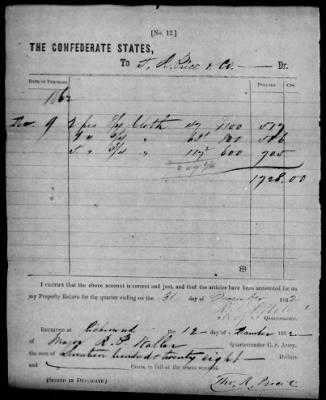 [No. 12.]
THE CONFEDERATE STATES,
To T. R. Price & Co. Dr.
DATE OF PURCHASE. DOLLARS. CTS.
1862
9 3/4 Cloth 47 1100 517
3/4 " 800
5 " 3/4 " 600 705
1728.00
I CERTIFY that the above account is correct and just, and that the articles have been accounted for on
my Property Return for the quarter ending on the 31 day of December 1862
Quartermaster.
RECEIVED at Richmond the 12 day of December 1862, of
Major R. P. Waller Quartermaster C. S. Army,
the sum of Seventeen hundred & twenty eight Dollars
and Cents, in full of the above account.
(SIGNED IN DUPLICATE.) Tho. R. Price & Co